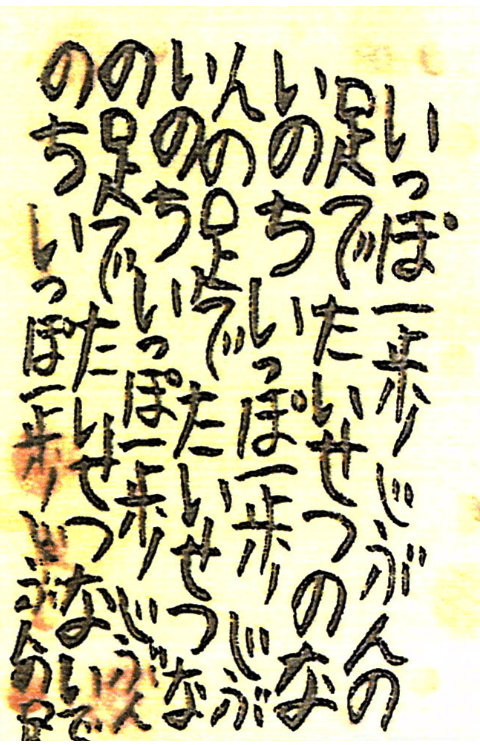 いっぽ一歩じぶんの
足でたいせつのな
いのちいっぽ一歩じぶ
んの足でたいせつな
いのちいっぽ一歩じぶん
の足でたいせつないで
のちいっぽ一歩じぶんの足